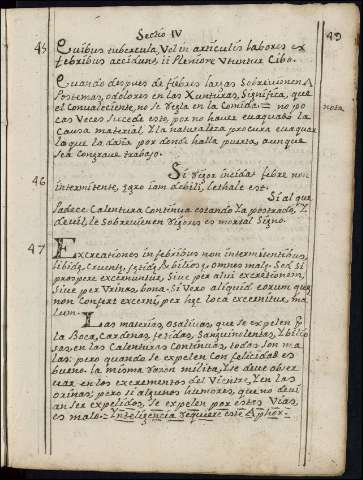 Sectio IV
49
45 Quibus tubercula, Vel in articulis labores ex
febribus accidunt, ii pleniore Vtuntur Cibo.
Quando despues de fiebres largas Sobrevienen A
Postemas, odolores en las Xunturas, Significa, que
el Convaleciente, no se regla en la Comida. = no po
nota
cas Veces Sucede esto, por no haver evaquado la
Causa material Y la naturaleza procura evaquar
la que la daña por donde halla puerta, aunque
sea congrave trabajo.
46 Si rigor incidat febre non
intermitente, ægro iam debili, lethale est.
Si al que
Padece Calentura Continua estando Ya postrado, Y
devil, le Sobrevienen rigores es mortal Signo.
47 Excreationes in febribus non intermitentibus,
libidæ, Cruentæ, fetidæ, & biliosæ, omnes malæ. Sed si
prospere excernuntur, Siue per alui excretionem,
Siue per Vrinas, bonæ. Si Vero aliquid eorum quæ
non Confert excerni, per hæc loca excernitur, ma
lum.
Las materias, o salivas, que se expelen P
la Boca, Cardinas, fetidas, Sanguinolentas, Y bilio
sas, en las Calenturas Continuas, todas son ma
las: pero quando se expelen con felicidad es
bueno. la misma razon milita, Y se deve obser
var, en los excrementos del Vientre, Y en las
orinas; pero si algunos humores, que no devi
an ser expelidos, se expelen por estas Vias,
es malo. = Ynteligencia requiere este Aphor-